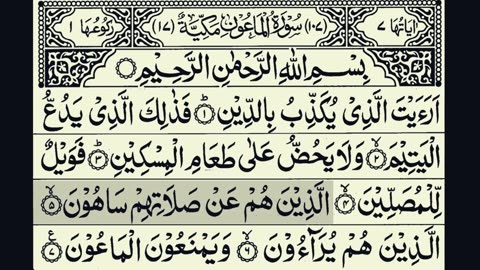 اٰيَاتُهَا ٧ (١٠٧) سُوْرَةُ الْمَاعُوْنِ مَكِّيَّةٌ (١٧) رُكُوْعُهَا ١
بِسْمِ اللهِ الرَّحْمٰنِ الرَّحِيْمِ
اَرَءَيْتَ الَّذِىْ يُكَذِّبُ بِالدِّيْنِ ؕ﴿١﴾ فَذٰلِكَ الَّذِىْ يَدُعُّ
الْيَتِيْمَ ۙ﴿٢﴾ وَلَا يَحُضُّ عَلٰى طَعَامِ الْمِسْكِيْنِ ؕ﴿٣﴾ فَوَيْلٌ
لِّلْمُصَلِّيْنَ ۙ﴿٤﴾ الَّذِيْنَ هُمْ عَنْ صَلَاتِهِمْ سَاهُوْنَ ۙ﴿٥﴾
الَّذِيْنَ هُمْ يُرَآءُوْنَ ۙ﴿٦﴾ وَيَمْنَعُوْنَ الْمَاعُوْنَ ﴿٧﴾ ع